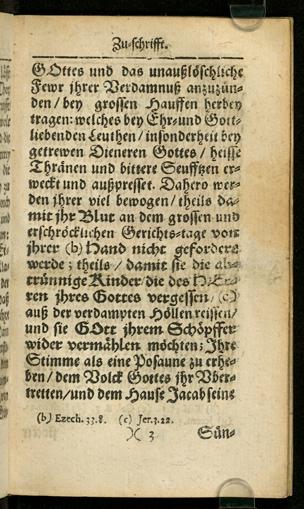 Zu-schrifft.
GOttes und das unaußlöschliche
Fewr jhrer Verdamnuß anzuzün-
den / bey grossen Hauffen herbey
tragen: welches bey Ehr- und Gott-
liebenden Leuthen / insonderheit bey
getrewen Dieneren Gottes / heisse
Thränen und bittere Seufftzen er-
weckt und außpresset. Dahero wer-
den jhrer viel bewogen / theils da-
mit jhr Blut an dem grossen und
erschröcklichen Gerichts-tage von
jhrer (b) Hand nicht gefordert
werde; theils / damit sie die ab-
trünnige Kinder / die des HEr-
ren jhres Gottes vergessen / (c)
auß der verdampten Höllen reissen /
und sie GOtt jhrem Schöpffer
wider vermählen möchten; Ihre
Stimme als eine Posaune zu erhe-
ben / dem Volck Gottes jhr Vber-
tretten / und dem Hause Jacob seine
(b) Ezech. 33.8. (c) Jer. 3.22.
)( 3 Sün-